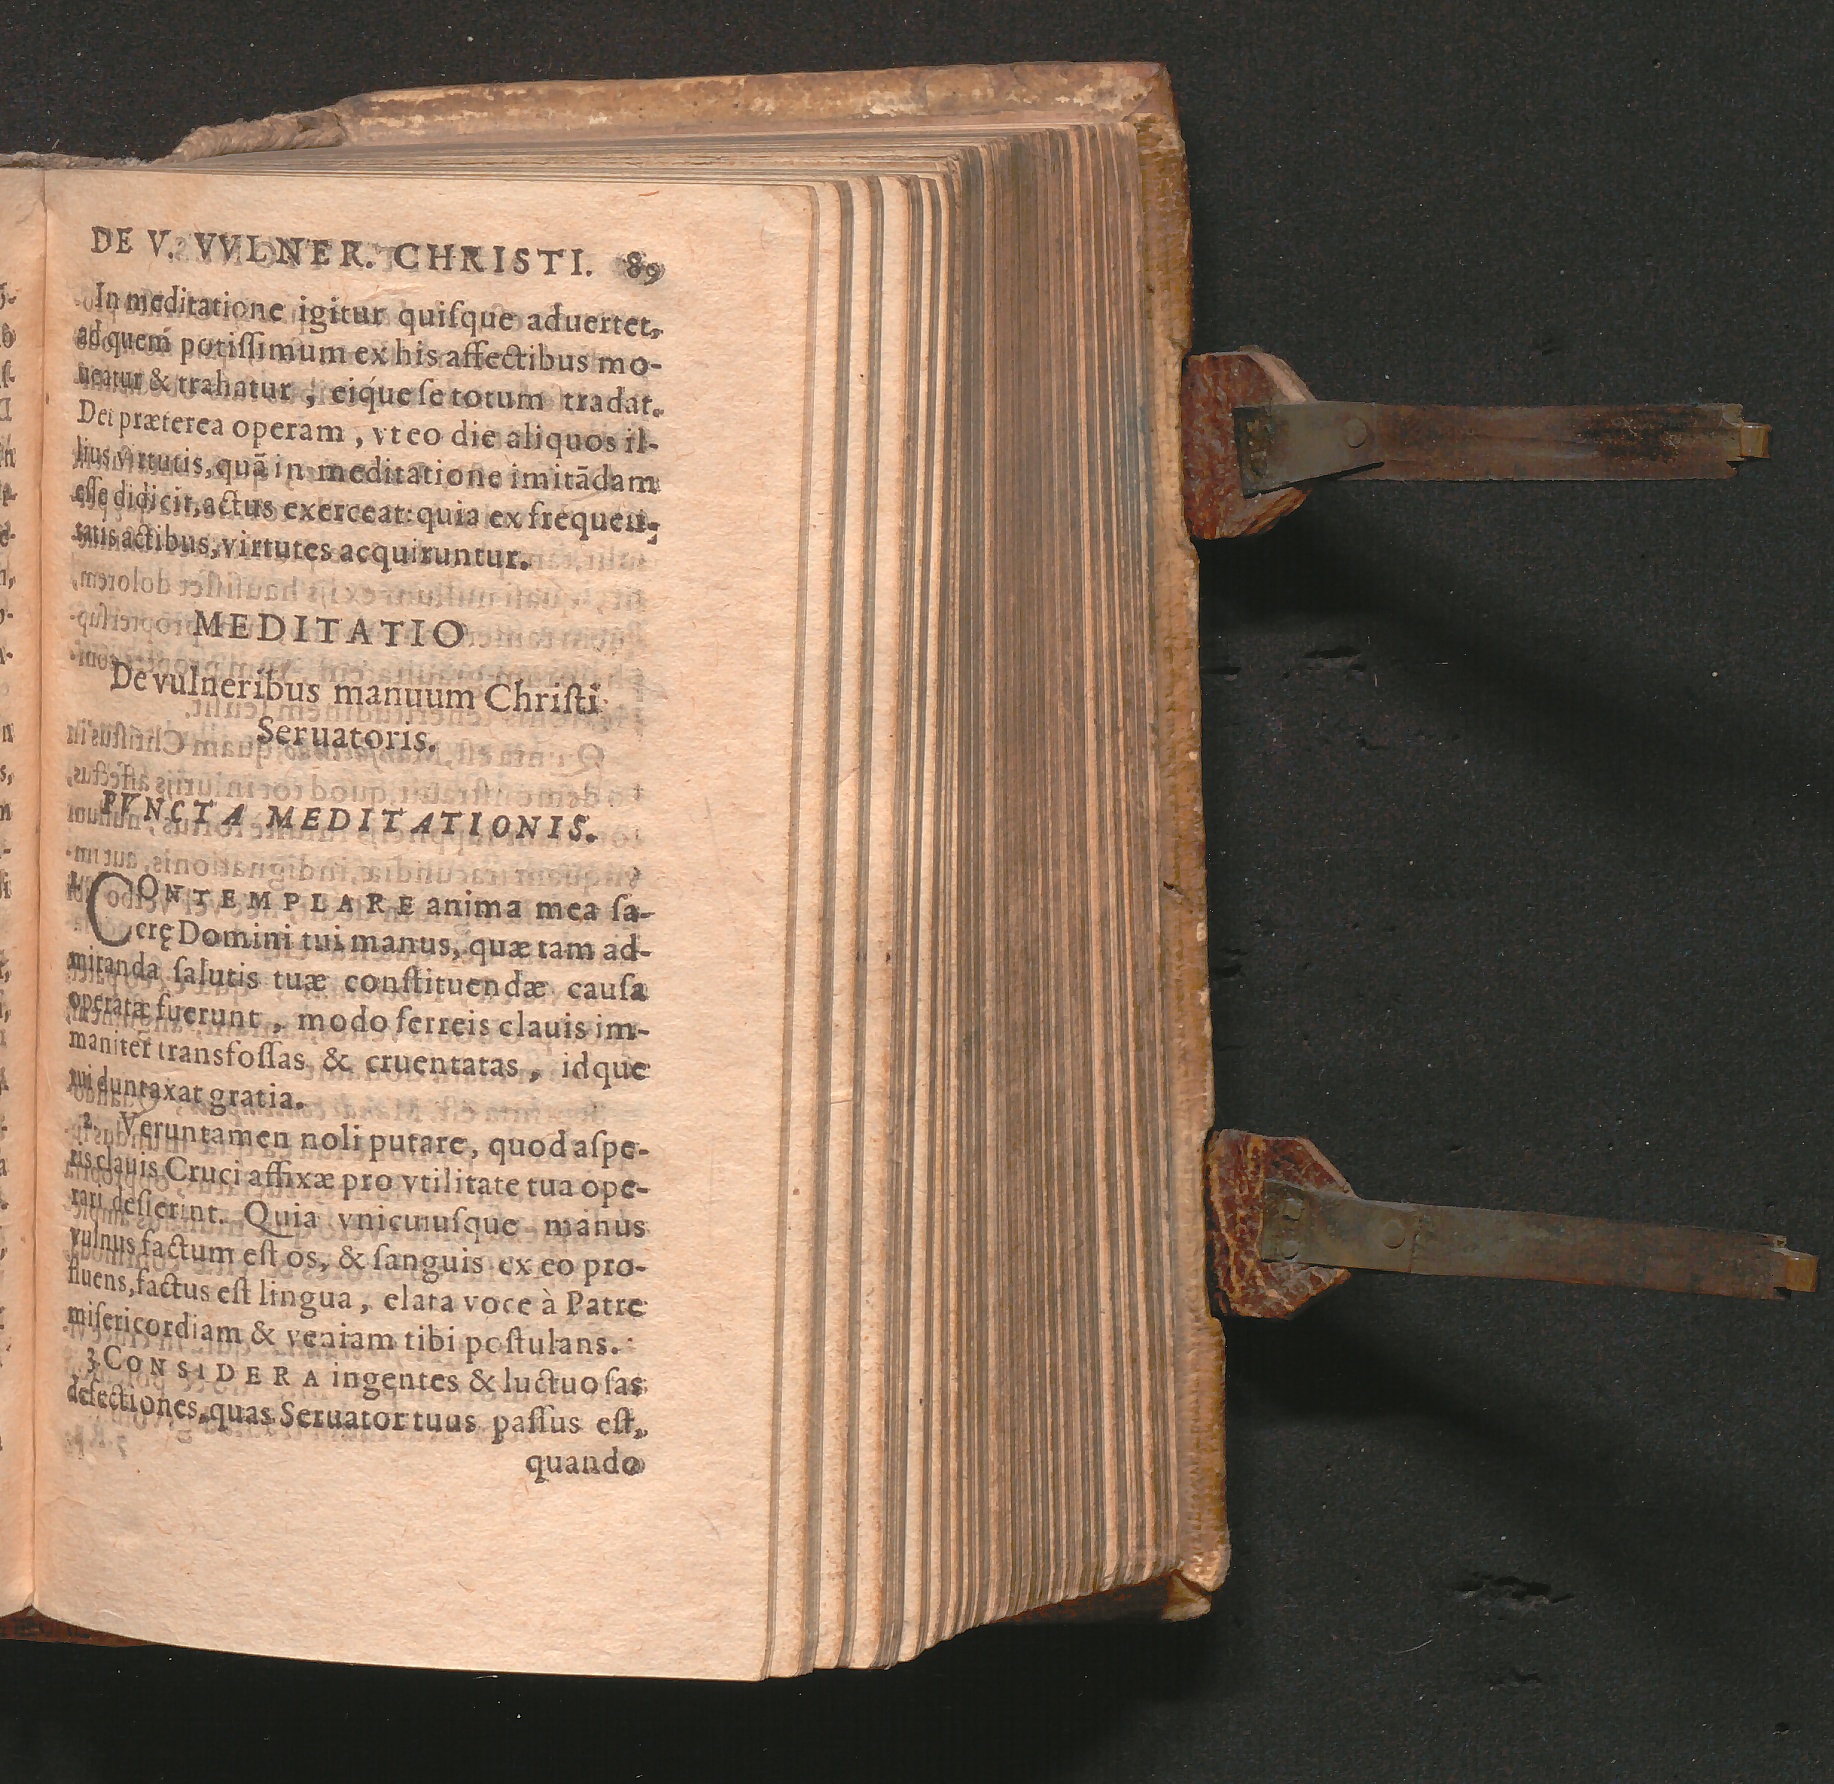 DE V. VVLNER. CHRISTI. 89
In meditatione igitur quiſque aduertet,
ad quem potiſſimum ex his affectibus mo-
ueatur & trahatur, eiq́ue ſe totum tradat.
Det præterea operam, vt eo die aliquos il-
lius virtutis, quā in meditatione imitādam
eſſe didicit, actus exerceat: quia ex frequen-
tatis actibus, virtutes acquiruntur.
MEDITATIO
De vulneribus manuum Chriſti
Seruatoris.
PVNCTA MEDITATIONIS.
1. CONTEMPLARE anima mea ſa-
crę Domini tui manus, quæ tam ad-
miranda ſalutis tuæ conſtituendæ cauſa
operatæ fuerunt, modo ferreis clauis im-
maniter transfoſſas & cruentatas, idque
tui duntaxat gratia.
2. Veruntamen noli putare, quod aſpe-
ris clauis Cruci affixæ pro vtilitate tua ope-
rari deſierint. Quia vnicuiuſque manus
vulnus factum eſt os, & ſanguis ex eo pro-
fluens, factus eſt lingua, elata voce à Patre
miſericordiam & veniam tibi poſtulans.
3. CONSIDERA ingentes & luctuoſas
defectiones, quas Seruator tuus paſſus eſt,
quando